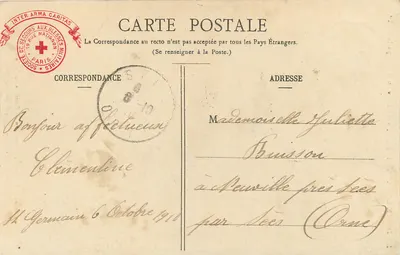 INTER ARMA CARITAS
SOCIÉTÉ DE SECOURS AUX BLESSÉS MILITAIRES
PARIS
CARTE POSTALE
La Correspondance au recto n'est pas acceptée par tous les Pays Étrangers.
(Se renseigner à la Poste.)
CORRESPONDANCE
ADRESSE
Bonjour affectueux
Clémentine
St Germain 6 Octobre
Mademoiselle Juliette
Buisson
à Neuville près Sées
par Sées (Orne)